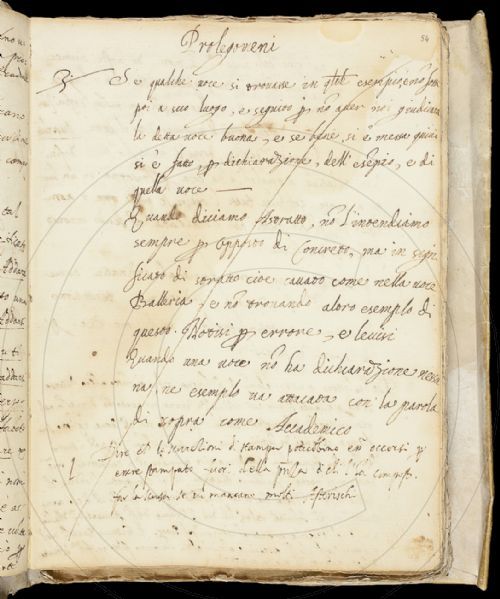 Prolegomeni
54
Se qualche voce si trovasse in qsti esempi, e nō fosse
poi a suo luogo, e seguito p nō aver noi giudicata
la detta voce buona, e se bene si è messa quivi
si è fatto p dichiarazione, dell' esēpio, e di
quella voce
Quando diciamo Astratto, nō l'intendiamo
sempre p opposto di Concreto, ma in signi
ficato di
cioè cavato come nella voce
Balleria, e nō trovando altro esempio di
questo. Notisi p errore, e levisi
Quando una voce nō ha dichiarazione nessu
na, ne esempio va attacata con la parola
di sopra come Accademico
Dire
le
di stampa
p
entre stampate
della
se vi mancano molti Asterischi